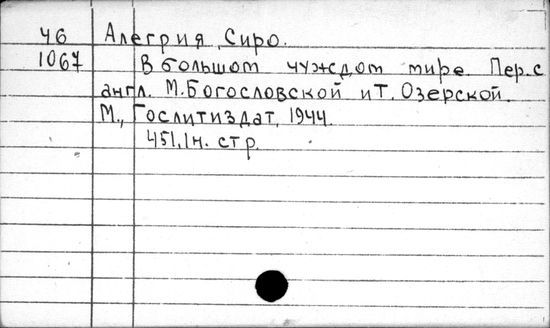 46 Алегрия, Сиро.
1067 В большом чуждом мире. Пер. с
англ. М. Богословской и Т. Озерской.
М., Гослитиздат, 1944.
451, 1 н. стр.